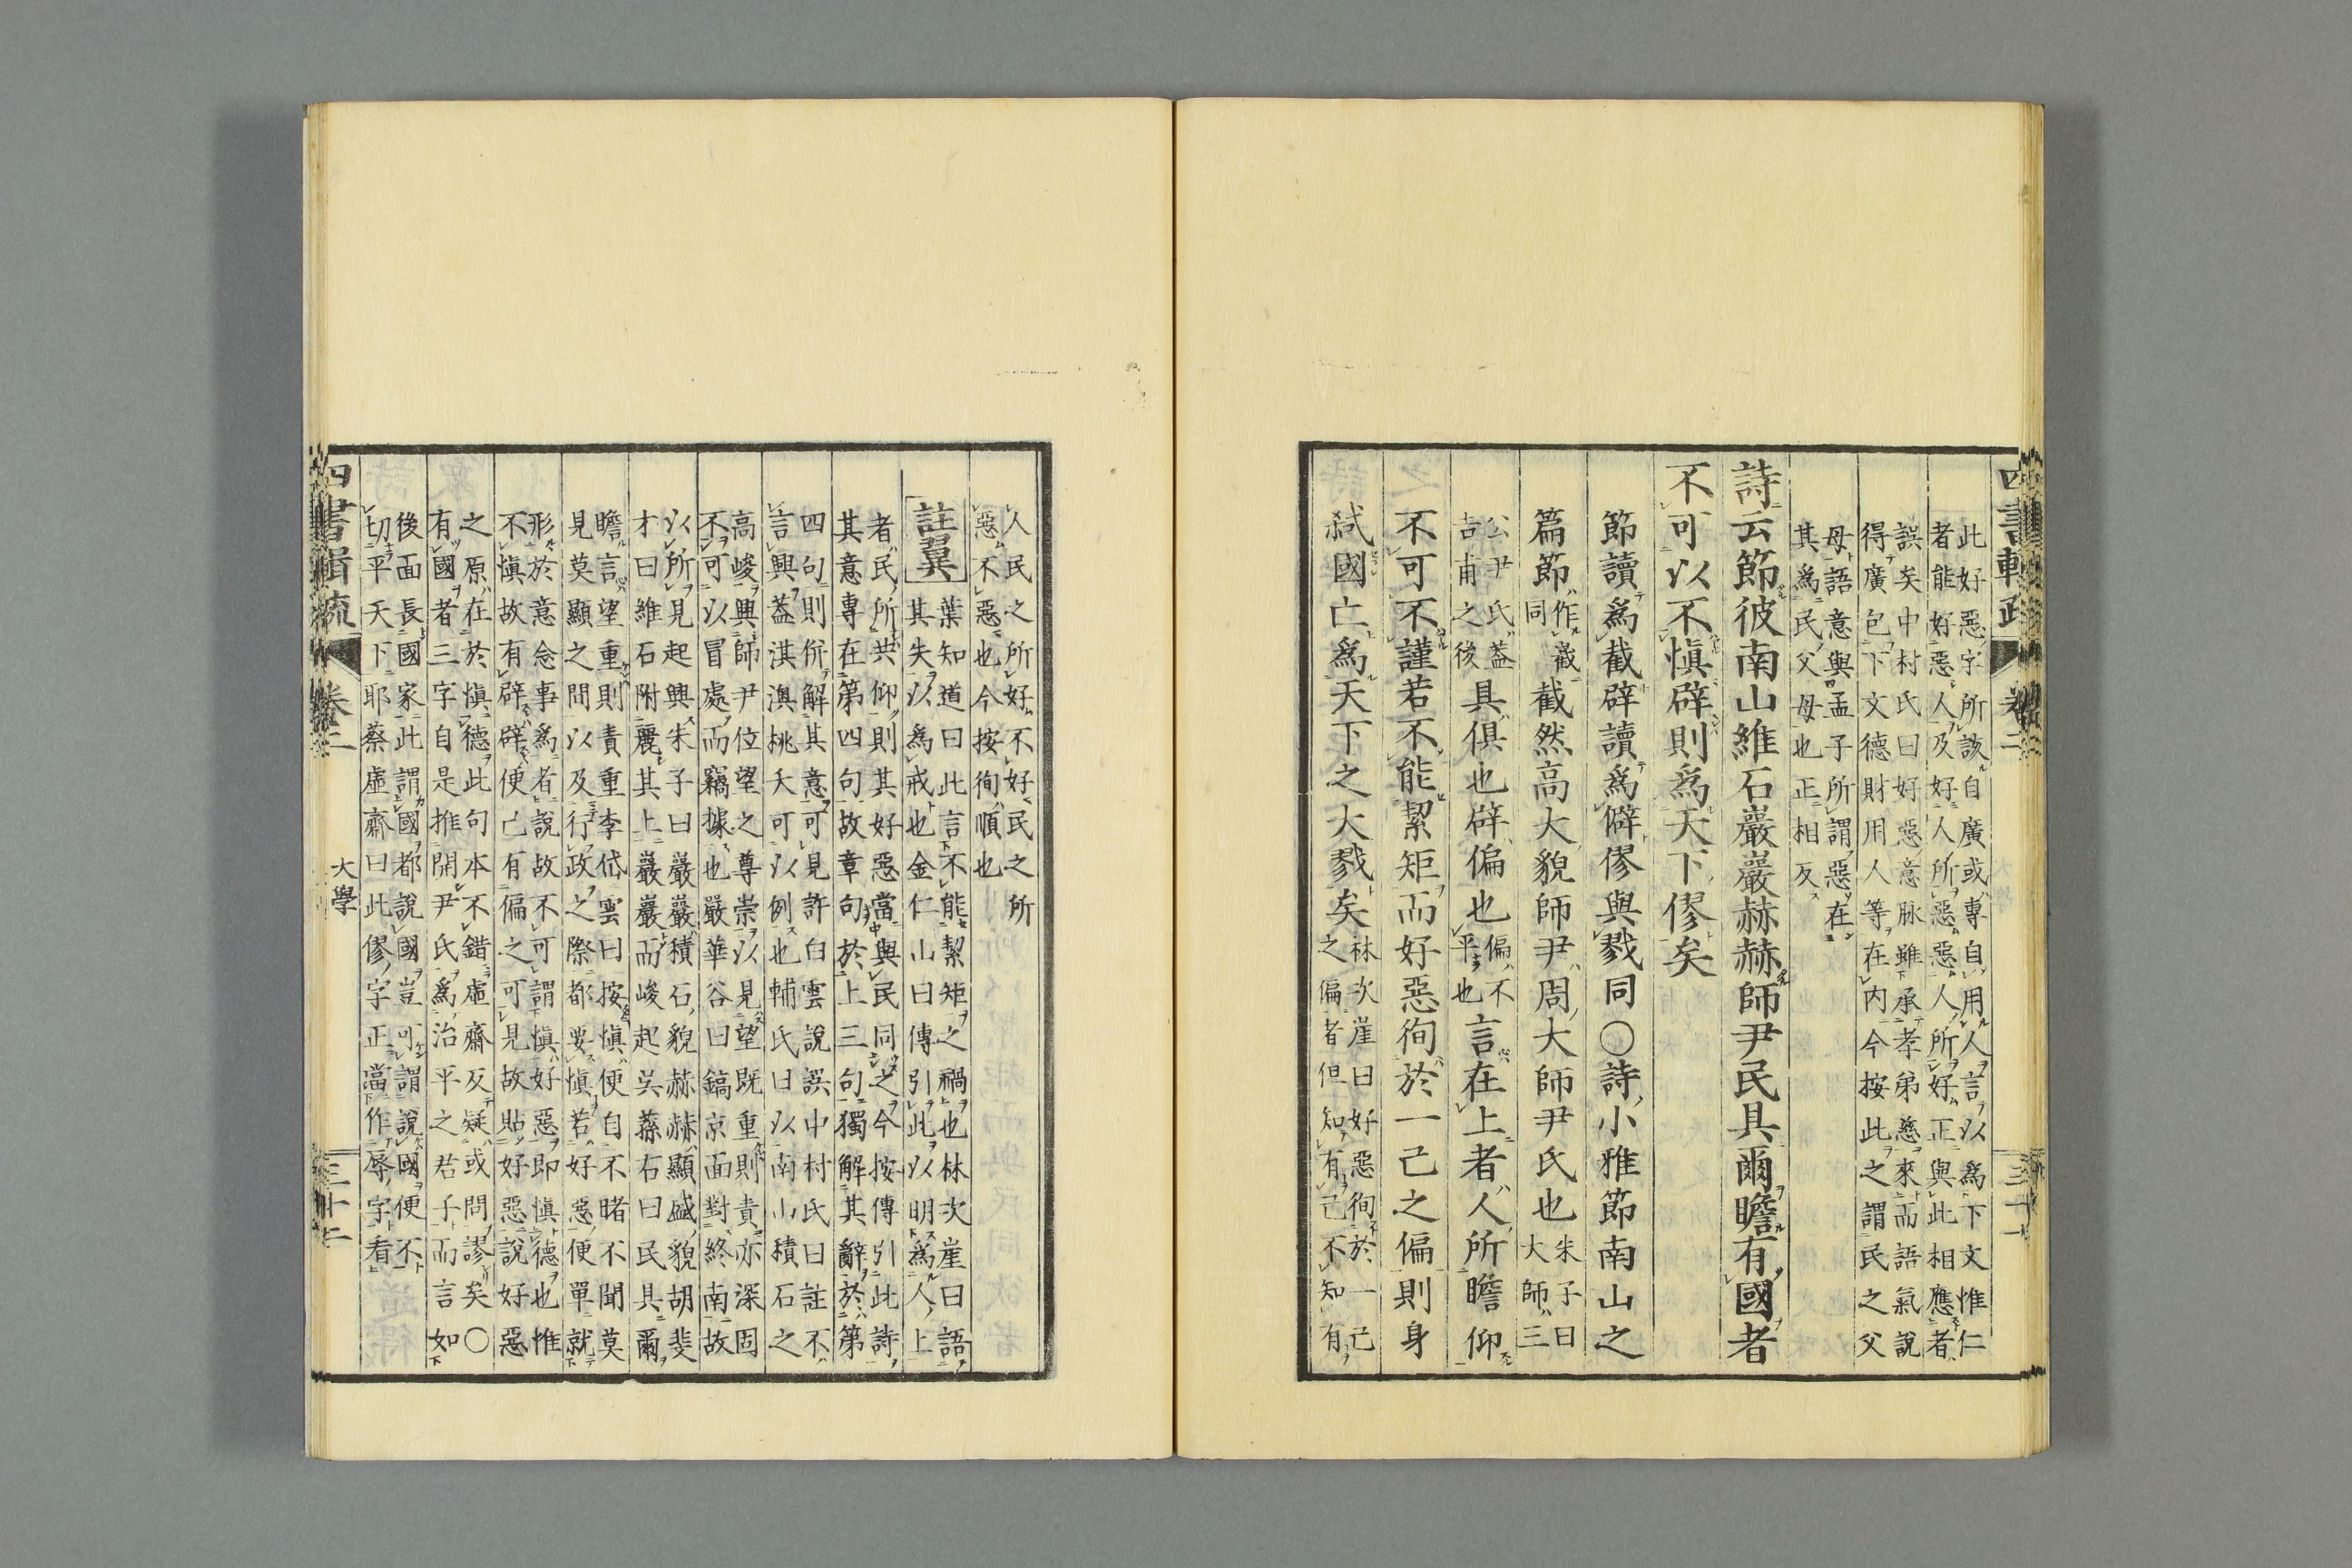 四書輯疏
卷二
三十一
此好惡字所該自廣或專自用人言以爲下文惟仁
者能好惡人及好人所惡惡人所好正與此相應者
誤矣中村氏曰好惡意脉雖承孝弟慈來而語氣說
得廣包下文德財用人等在内今按此之謂民之父
母語意與孟子所謂惡在
其爲民父母也正相反
詩云節彼南山維石巖巖赫赫師尹民具爾瞻有國者
不可以不愼辟則爲天下僇矣
節讀爲截辟讀爲僻僇與戮同〇詩小雅節南山之
篇節
作巀
同
截然高大貌師尹周大師尹氏也
朱子曰
大師三
公尹氏葢
吉甫之後
具俱也辟偏也
偏不
平也
言在上者人所瞻仰
不可不謹若不能絜矩而好惡徇於一己之偏則身
弑國亡爲天下之大戮矣
林次崖曰好惡徇於一己
之偏者但知有己不知有
人民之所好不好民之所
惡不惡也今按徇順也
註翼
葉知道曰此言不能絜矩之禍也林次崖曰語
其失以爲戒也金仁山曰傳引此以明爲人上
者民所共仰則其好惡當與民同之今按傳引此詩
其意專在第四句故章句於上三句獨解其辭於第
四句則併解其意可見許白雲說誤中村氏曰註不
言興葢淇澳桃夭可以例也輔氏曰以南山積石之
高峻興師尹位望之尊崇以見望既重則責亦深固
不可以冒處而竊據也嚴華谷曰鎬京面對終南故
以所見起興朱子曰巖巖積石貌赫赫顯盛貌胡斐
才曰維石附麗其上巖巖而峻起吳蓀右曰民具爾
瞻言望重則責重李岱雲曰按愼便自不睹不聞莫
見莫顯之間以及行政之際都要愼若好惡便單就
形於意念事爲者說故不可謂愼好惡即愼德也惟
不愼故有辟辟便己有偏之可見故貼好惡說好惡
之原在於愼德此句本不錯虛齋反疑或問謬矣〇
有國者三字自是推開尹氏爲治平之君子而言如
後面長國家此謂國都說國豈可謂說國便不
切平天下耶蔡虛齋曰此僇字正當作辱字看
四書輯疏
卷二
大學
三十二